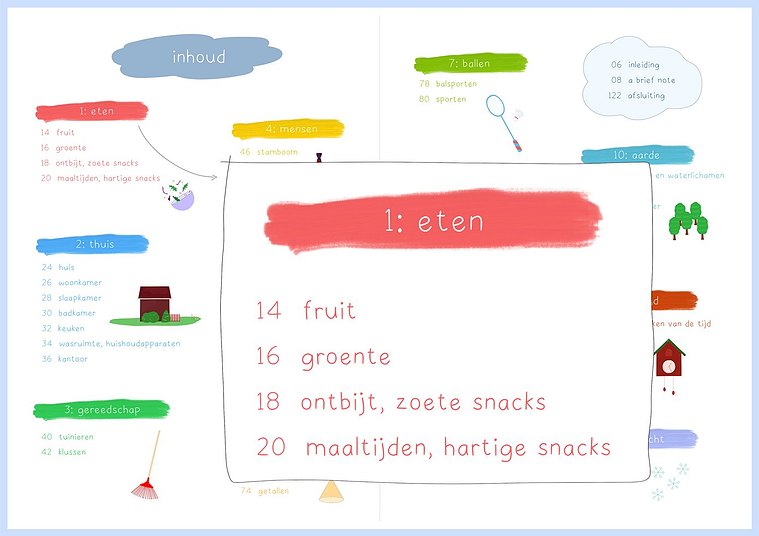 inhoud
1: eten
14 fruit
16 groente
18 ontbijt, zoete snacks
20 maaltijden, hartige snacks
2: thuis
24 huis
26 woonkamer
28 slaapkamer
30 badkamer
32 keuken
34 wasruimte, huishoudapparaten
36 kantoor
3: gereedschap
40 tuinieren
42 klussen
4: mensen
46 stamboom
74 getallen
7: ballen
78 balsporten
80 sporten
06 inleiding
08 a brief note
122 afsluiting
10: aarde
en waterlichamen
er
d
ken van de tijd
cht
1: eten
14 fruit
16 groente
18 ontbijt, zoete snacks
20 maaltijden, hartige snacks